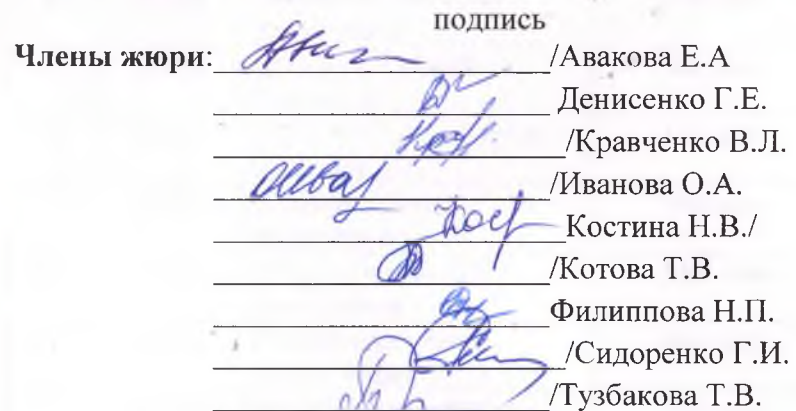 подпись
Члены жюри: /Авакова Е.А
Денисенко Г.Е.
/Кравченко В.Л.
/Иванова О.А.
Костина Н.В./
/Котова Т.В.
Филиппова Н.П.
/Сидоренко Г.И.
/Тузбакова Т.В.